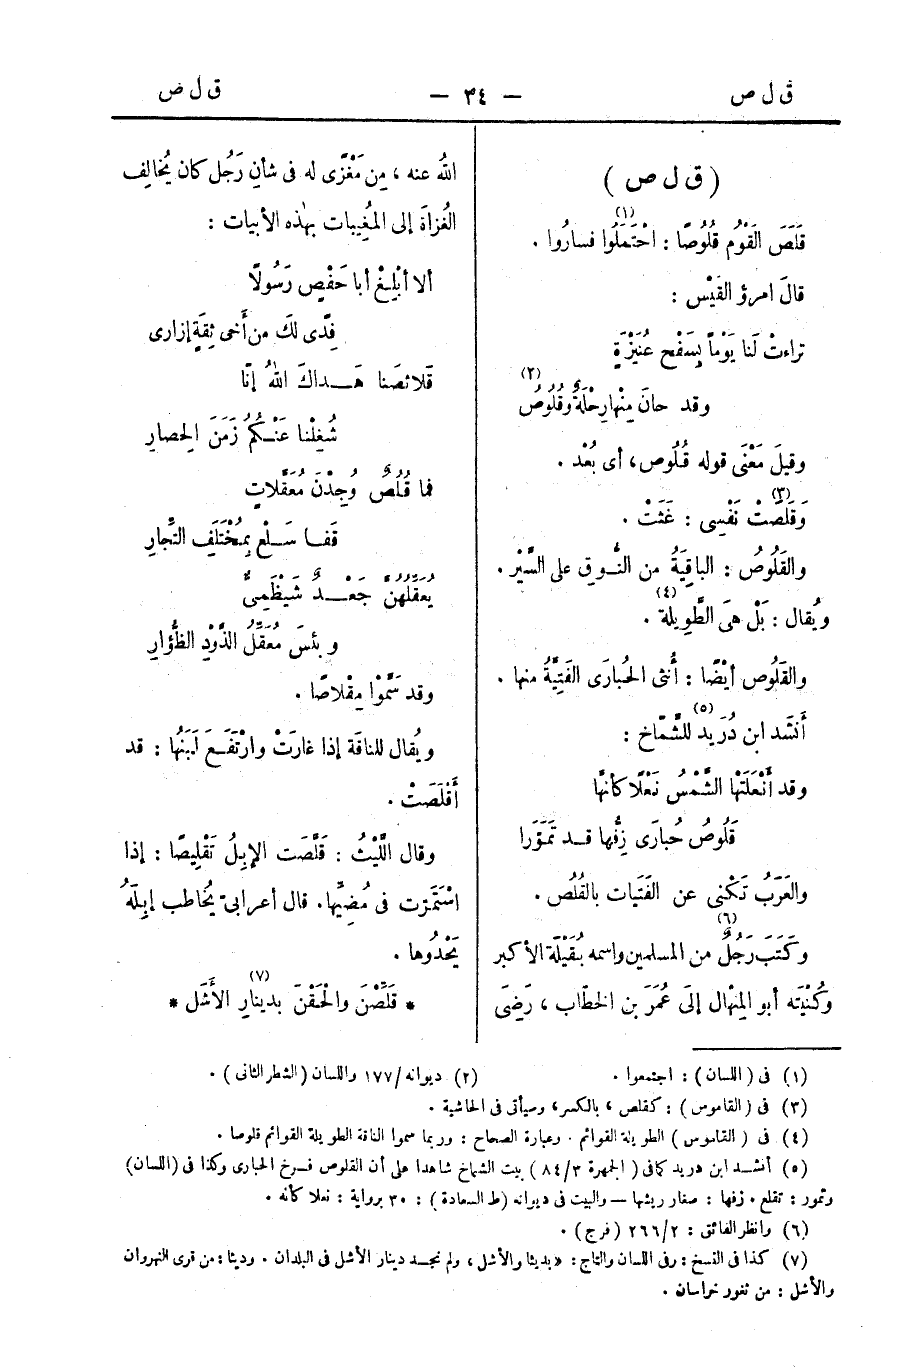 ق ل ص
— ٣٤ —
ق ل ض
( ق ل ص )
قَلَصَ القَوْمُ قُلُوصًا : احْتَمَلُوا(١) فسارُوا .
قالَ امرؤ القَيْس :
تراءتْ لنا يَوْماً بِسَفْحِ عُنَيْزَةٍ
وقد حانَ مِنْها رِحْلَةٌ وقُلُوصُ(٢)
وقيلَ مَعْنَى قوله قُلُوص، أى بُعْد .
وَقَلَصَتْ(٣) نَفْسِى : غَثَتْ .
والقَلُوصُ : الباقِيَةُ من النُّوق على السَّيْر .
ويُقال : بَلْ هىَ الطَّوِيلة(٤) .
والقَلُوص أيْضًا : أُنثى الحُبارَى الفَتِيَّةُ منها .
أَنشَد ابن دُرَيد(٥) للشَّمّاخ :
وقد أَنْعَلَتْها الشَّمْسُ نَعْلًا كأنَّها
قَلُوصُ حُبارَى زِفُّها قد تَمَوَّرا
والعَرَبُ تَكْنِى عن الفَتَيات بالقُلُص .
وكَتَبَ رَجُلٌ(٦) من المسلمين واسمه بُقَيْلَة الأكبر
وكُنْيَته أبو المِنْهال إلَى عُمَرَ بن الخطّاب ، رَضِىَ
اللهُ عنه ، مِن مَغْزًى له فى شأنِ رَجُل كان يُخالِف
الغُزاةَ إلى المُغِيبات بهٰذه الأبيات :
ألا أبْلِغْ أبا حَفْصٍ رَسُولًا
فِدًى لكَ من أخى ثِقَةٍ إزارى
قَلائصَنا هَداكَ اللهُ إنّا
شُغِلْنا عَنْكُمُ زَمَنَ الحِصارِ
فما قُلُصٌ وُجِدْنَ مُعَقَّلاتٍ
قَفا سَلْعٍ بِمُخْتَلَفِ التِّجارِ
يُعَقِّلُهُنّ جَعْدٌ شَيْظَمِىٌّ
وبئسَ مُعَقِّلُ الذَّوْدِ الظُّؤَارِ
وقد سَمَّوْا مِقْلاصًا .
ويُقال للناقَة إذا غارَتْ وارْتَفَعَ لَبَنُها : قد
أَقْلَصَتْ .
وقال اللَّيْثُ : قَلَّصَت الإبِلُ تَقْلِيصًا : إذا
اسْتَمَرّت فى مُضِيِّها. قال أعرابىّ يُخاطب إبِلَهُ
يَحْدُوها .
* قَلِّصْنَ والْحَقْنَ بدينارِ(٧) الأَشَلّ *
(١) فى (اللسان) : اجتمعوا .
(٢) ديوانه/١٧٧ واللسان (الشطر الثانى) .
(٣) فى (القاموس) : كقلص ، بالكسر، وسيأتى فى الحاشية .
(٤) فى ( القاموس ) الطويلة القوائم . وعبارة الصحاح : وربما سموا الناقة الطويلة القوائم قلوصا .
(٥) أنشد ابن دريد كما فى ( الجمهرة ٨٤/٣ ) بيت الشماخ شاهدا على أن القلوص فرخ الحبارى وكذا فى (اللسان)
وتمور : تقلع . زفها : صغار ريشها — والبيت فى ديوانه (ط السعادة) : ٣٠ برواية : نعلا كأنه .
(٦) وانظر الفائق : ٢٦٦/٢ (فرج) .
(٧) كذا فى النسخ : وفى اللسان والتاج : «بدبثا والأشل ، ولم نجد دينار الأشل فى البلدان . ودبثا : من قرى النهروان
والأشل : من ثغور خراسان .